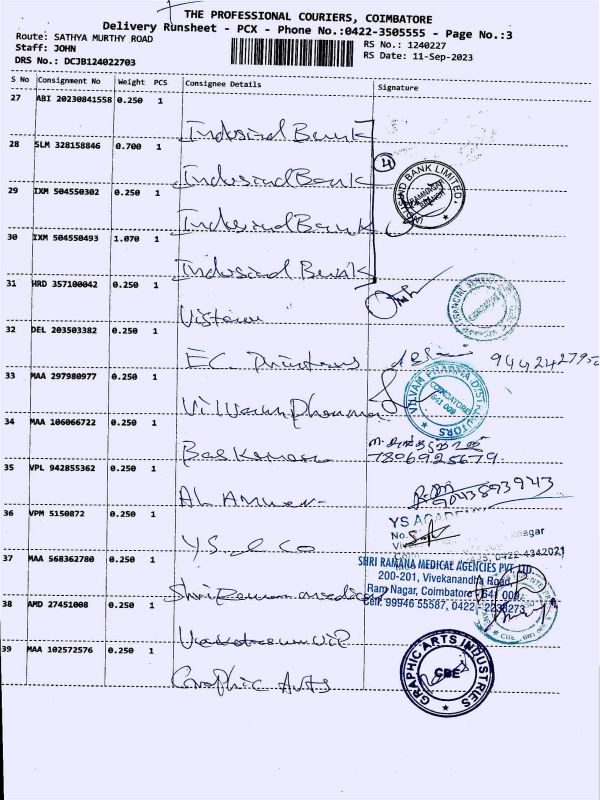 THE PROFESSIONAL COURIERS, COIMBATORE
Delivery Runsheet - PCX - Phone No.:0422-3505555 - Page No.:3
Route: SATHYA MURTHY ROAD
RS No.: 1240227
Staff: JOHN
RS Date: 11-Sep-2023
DRS No.: DCJB124022703
S No Consignment No Weight PCS Consignee Details Signature
27 ABI 20230841558 0.250 1
Indusind Bank
28 SLM 328158846 0.700 1
4
Indusind Bank
INDUSIND BANK LIMITED
RAMNAGAR BRANCH
29 IXM 504550302 0.250 1
Indusind Bank
30 IXM 504550493 1.070 1
Indusind Bank
31 HRD 357100042 0.250 1
COIMBATORE
32 DEL 203503382 0.250 1
E.C. Printers
33 MAA 297980977 0.250 1
VILVAM PHARMA DISTRIBUTORS
COIMBATORE
641 009
Vilvam Pharma
34 MAA 106066722 0.250 1
7806925679
35 VPL 942855362 0.250 1
9043893943
36 VPM 5150872 0.250 1
YS
No.
0422-4342021
YS & Co
37 MAA 568362780 0.250 1
SHRI RAMANA MEDICAL AGENCIES PVT. LTD.
200-201, Vivekanandha Road,
Ram Nagar, Coimbatore - 641 009.
Cell: 99946 55587, 0422 - 2236273
Shri Ramana medical
38 AMD 27451008 0.250 1
39 MAA 102572576 0.250 1
GRAPHIC ARTS INDUSTRIES
CBE
Graphic Arts